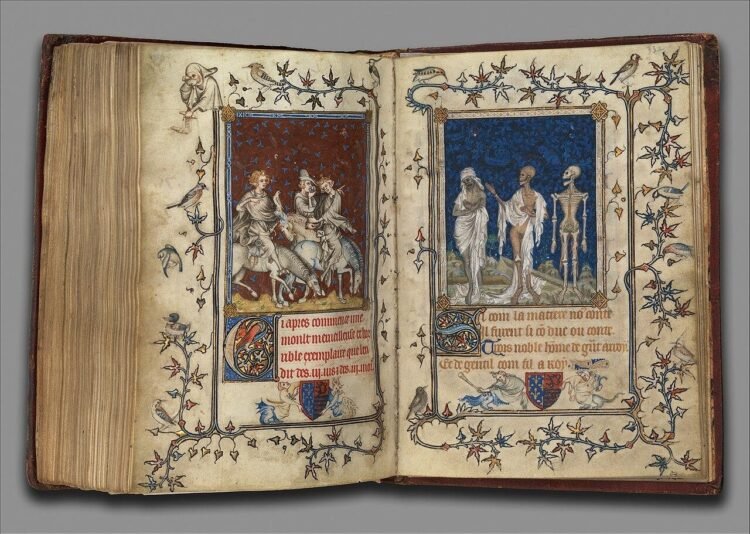 Ci apres commence une
moult merueilleuse et hor
rible exemplaire que len
dit des .iij. uis et des .iij. mors
Si com la matiere no9 conte
Il furent si cō duc ou conte
Trois noble hōme de g̃nt arroy
Et de gentil com fil a Roy.